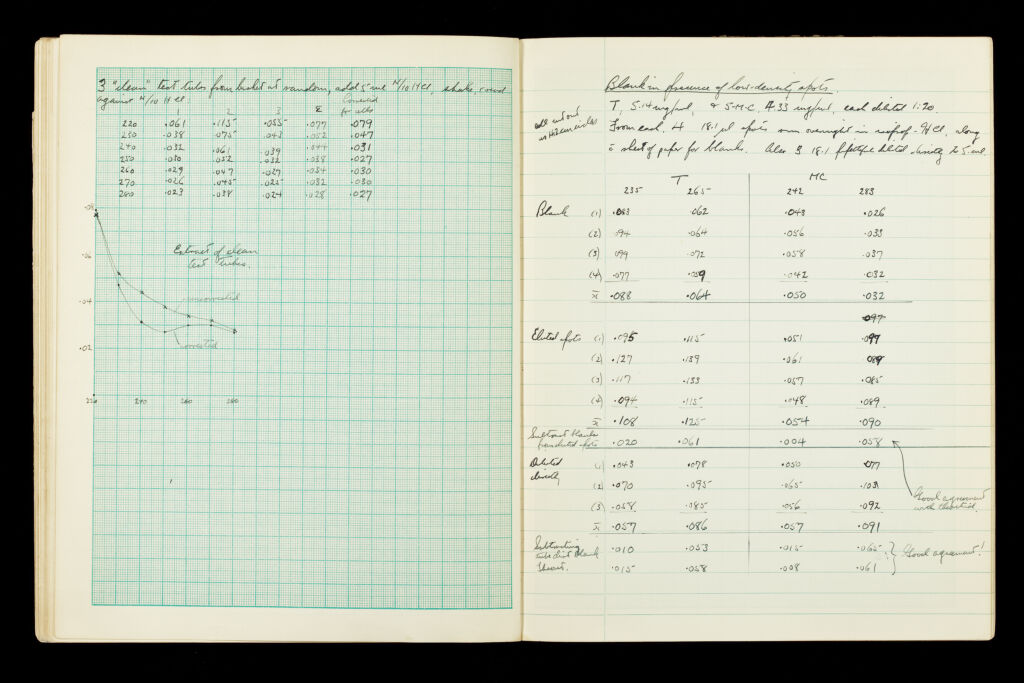 3 "clean" test-tubes from basket at random, add 5 ml N/10 HCl, shake, read
against N/10 HCl.
1 2 3 x̄ Corrected for cells
220 .061 .115 .055 .077 .079
230 .038 .075 .043 .052 .047
240 .032 .061 .039 .044 .031
250 .030 .052 .032 .038 .027
260 .029 .047 .027 .034 .030
270 .026 .045 .025 .032 .030
280 .023 .038 .024 .028 .027
.08
Extract of clean
test tubes.
.06
uncorrected
.04
corrected
.02
220 240 260 280
Blank in presence of low-density spots.
T, 5.14 mg/ml, & 5-M-C, 4.33 mg/ml, each diluted 1:20
From each, 4 18.1 μl spots run overnight in isoprop-HCl, along
c̄ sheet of paper for blanks. Also 3 18.1 diluted directly to 5 ml.
all cut out
T MC
235 265 242 283
Blank (1) .083 .062 .043 .026
(2) .094 .064 .056 .033
(3) .099 .072 .058 .037
(4) .077 .059 .042 .032
x̄ .088 .064 .050 .032
.097
Eluted spots (1) .095 .115 .051 .097
(2) .127 .139 .061 .089
(3) .117 .133 .057 .085
(4) .094 .115 .048 .089
x̄ .108 .125 .054 .090
Subtract blanks
from eluted spots .020 .061 .004 .058
Diluted (1) .043 .078 .050 .077
directly
(2) .070 .095 .065 .103
(3) .058 .085 .056 .092
x̄ .057 .086 .057 .091
Good agreement
with theoretical.
Subtracting
blank .010 .053 .015 .065
Good agreement!
Theoret. .015 .058 .008 .061